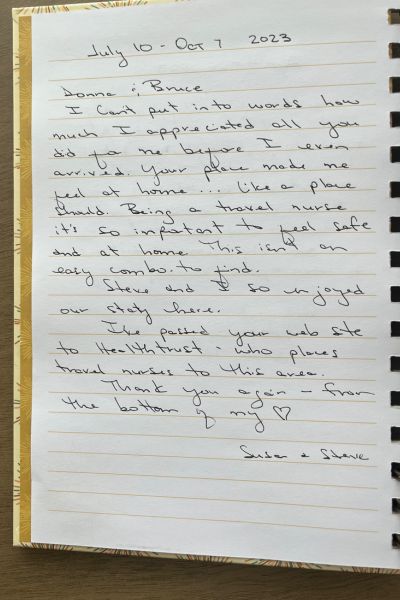 July 10 - Oct 7 2023
Donna & Bruce
I Can't put into words how
much I appreciated all you
did for me before I even
arrived. Your place made me
feel at home... like a place
should. Being a travel nurse
it's so important to feel safe
and at home. This isn't an
easy combo to find.
Steve and I so enjoyed
our stay here.
I've passed your web site
to HealthTrust - who places
travel nurses to this area.
Thank you again - from
the bottom of my ♡
Susan & Steve